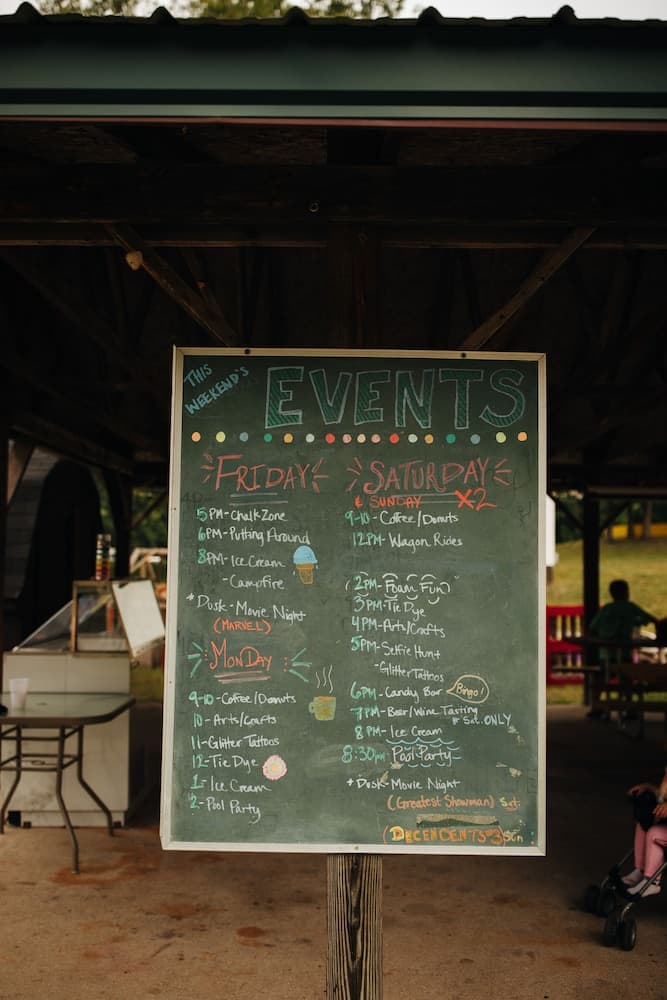 THIS
WEEKEND'S
EVENTS
FRIDAY
5PM-Chalk Zone
6PM-Putting Around
8PM-Ice Cream
-Campfire
*Dusk-Movie Night
(MARVEL)
MONDAY
9-10-Coffee/Donuts
10-Arts/Crafts
11-Glitter Tattoos
12-Tie Dye
1-Ice Cream
2-Pool Party
SATURDAY
& SUNDAY X2
9-10-Coffee/Donuts
12PM-Wagon Rides
(2PM-Foam Fun)
3PM-Tie Dye
4PM-Arts/Crafts
5PM-Selfie Hunt
-Glitter Tattoos
6PM-Candy Bar Bingo!
7PM-Beer/Wine Tasting
*Sat. ONLY
8PM-Ice Cream
8:30pm Pool Party
*Dusk-Movie Night
(Greatest Showman) Sat.
(DECENDENTS 3) Sun